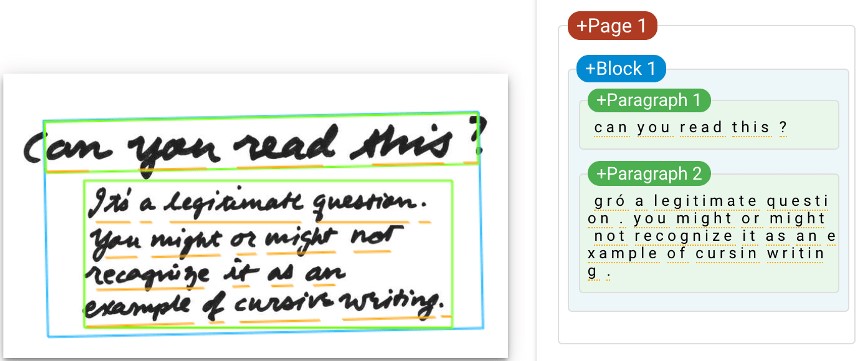 Can you read this?
It's a legitimate question.
You might or might not
recognize it as an
example of cursive writing.
+Page 1
+Block 1
+Paragraph 1
can you read this ?
+Paragraph 2
gró a legitimate questi
on . you might or might
not recognize it as an e
xample of cursin writin
g .